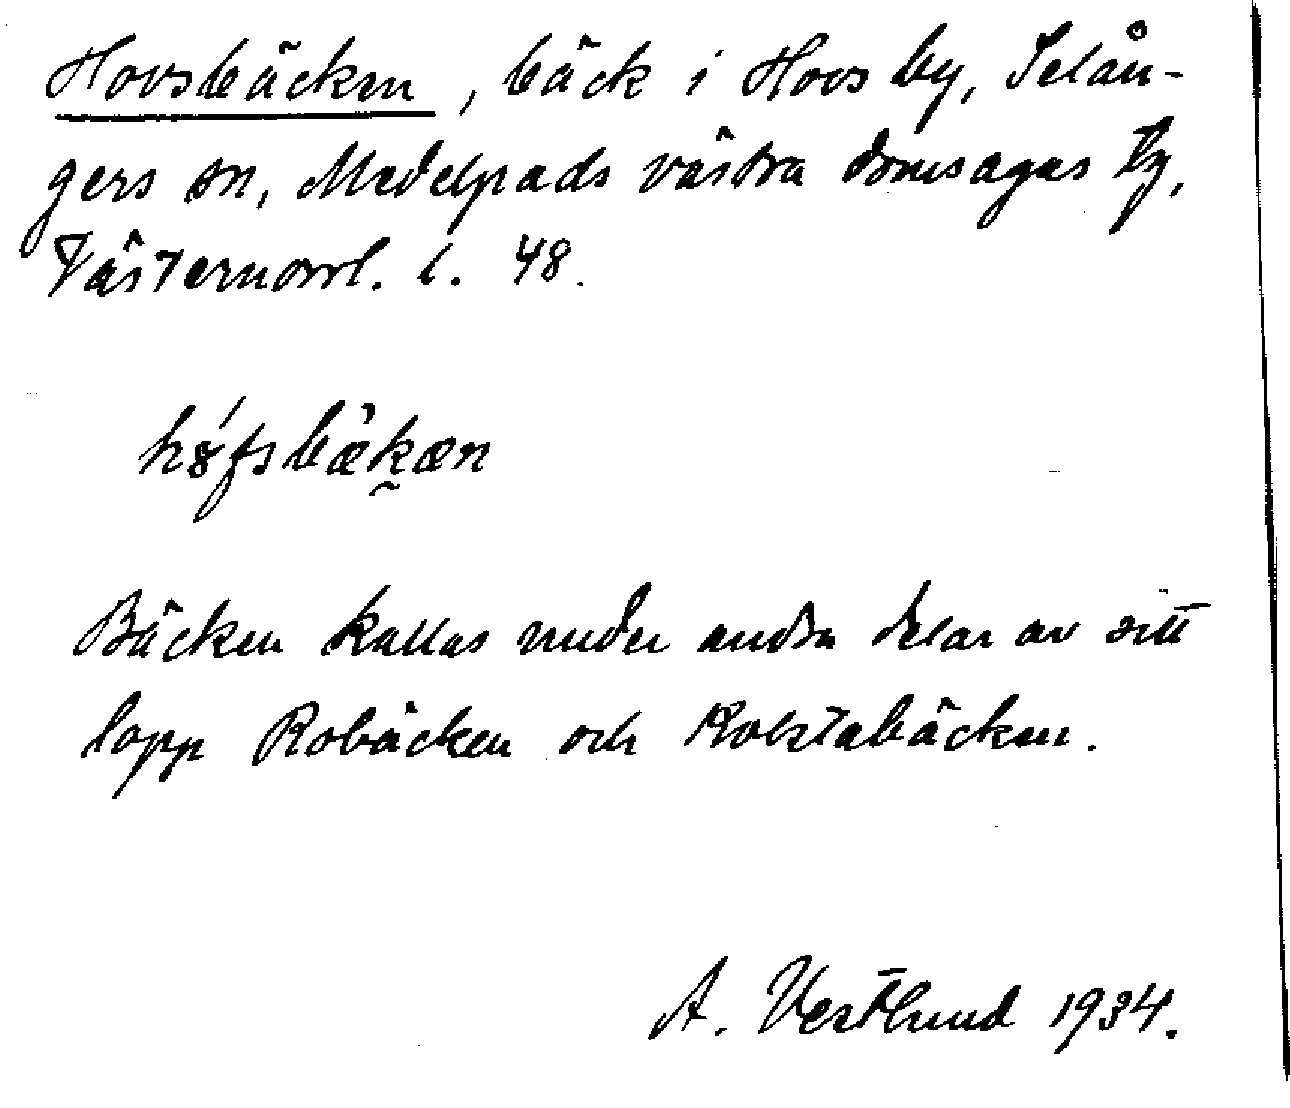 Hovsbäcken, bäck i Hovs by, Selån-
gers sn, Medelpads västra domsagas tg,
Västernorrl. l. 48.
bäkæn
Bäcken kallas under andra delar av sitt
lopp Robäcken och Rolstabäcken.
A. Vestlund 1934.